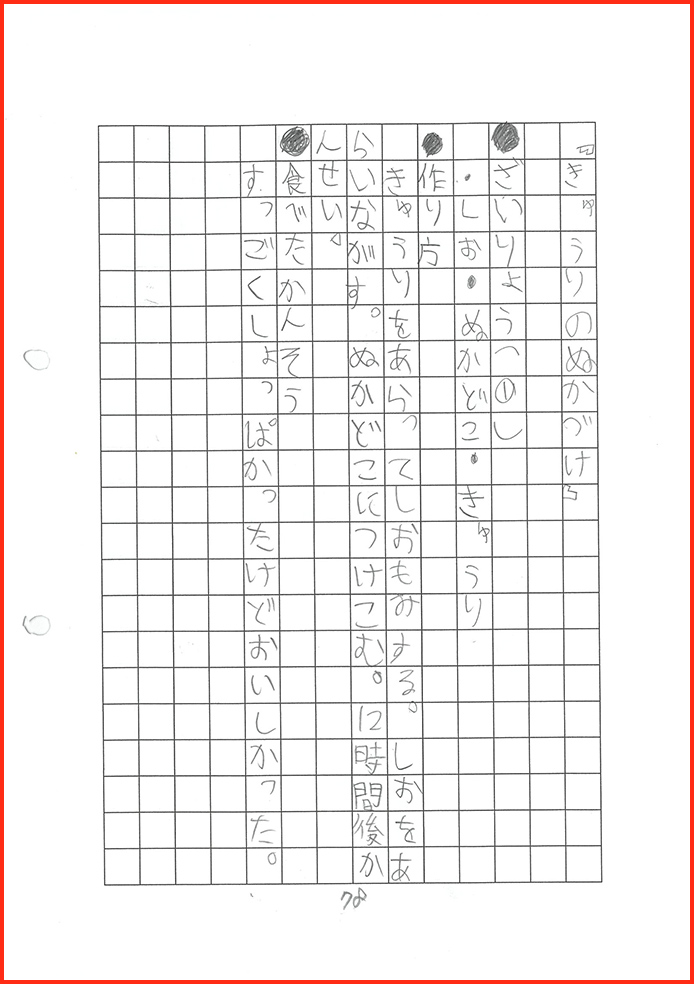 『きゅうりのぬかづけ』
●ざいりょう（①）
・しお・ぬかどこ・きゅうり
●作り方
きゅうりをあらってしおもみする。しおをあ
らいながす。ぬかどこにつけこむ。12時間後か
んせい。
●食べたかんそう
すっごくしょっぱかったけどおいしかった。
78